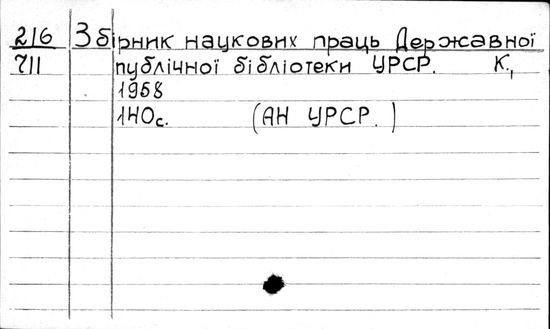 216 Збірник наукових праць Державної
711 публічної бібліотеки УРСР. К.,
1958
140с. (АН УРСР.)